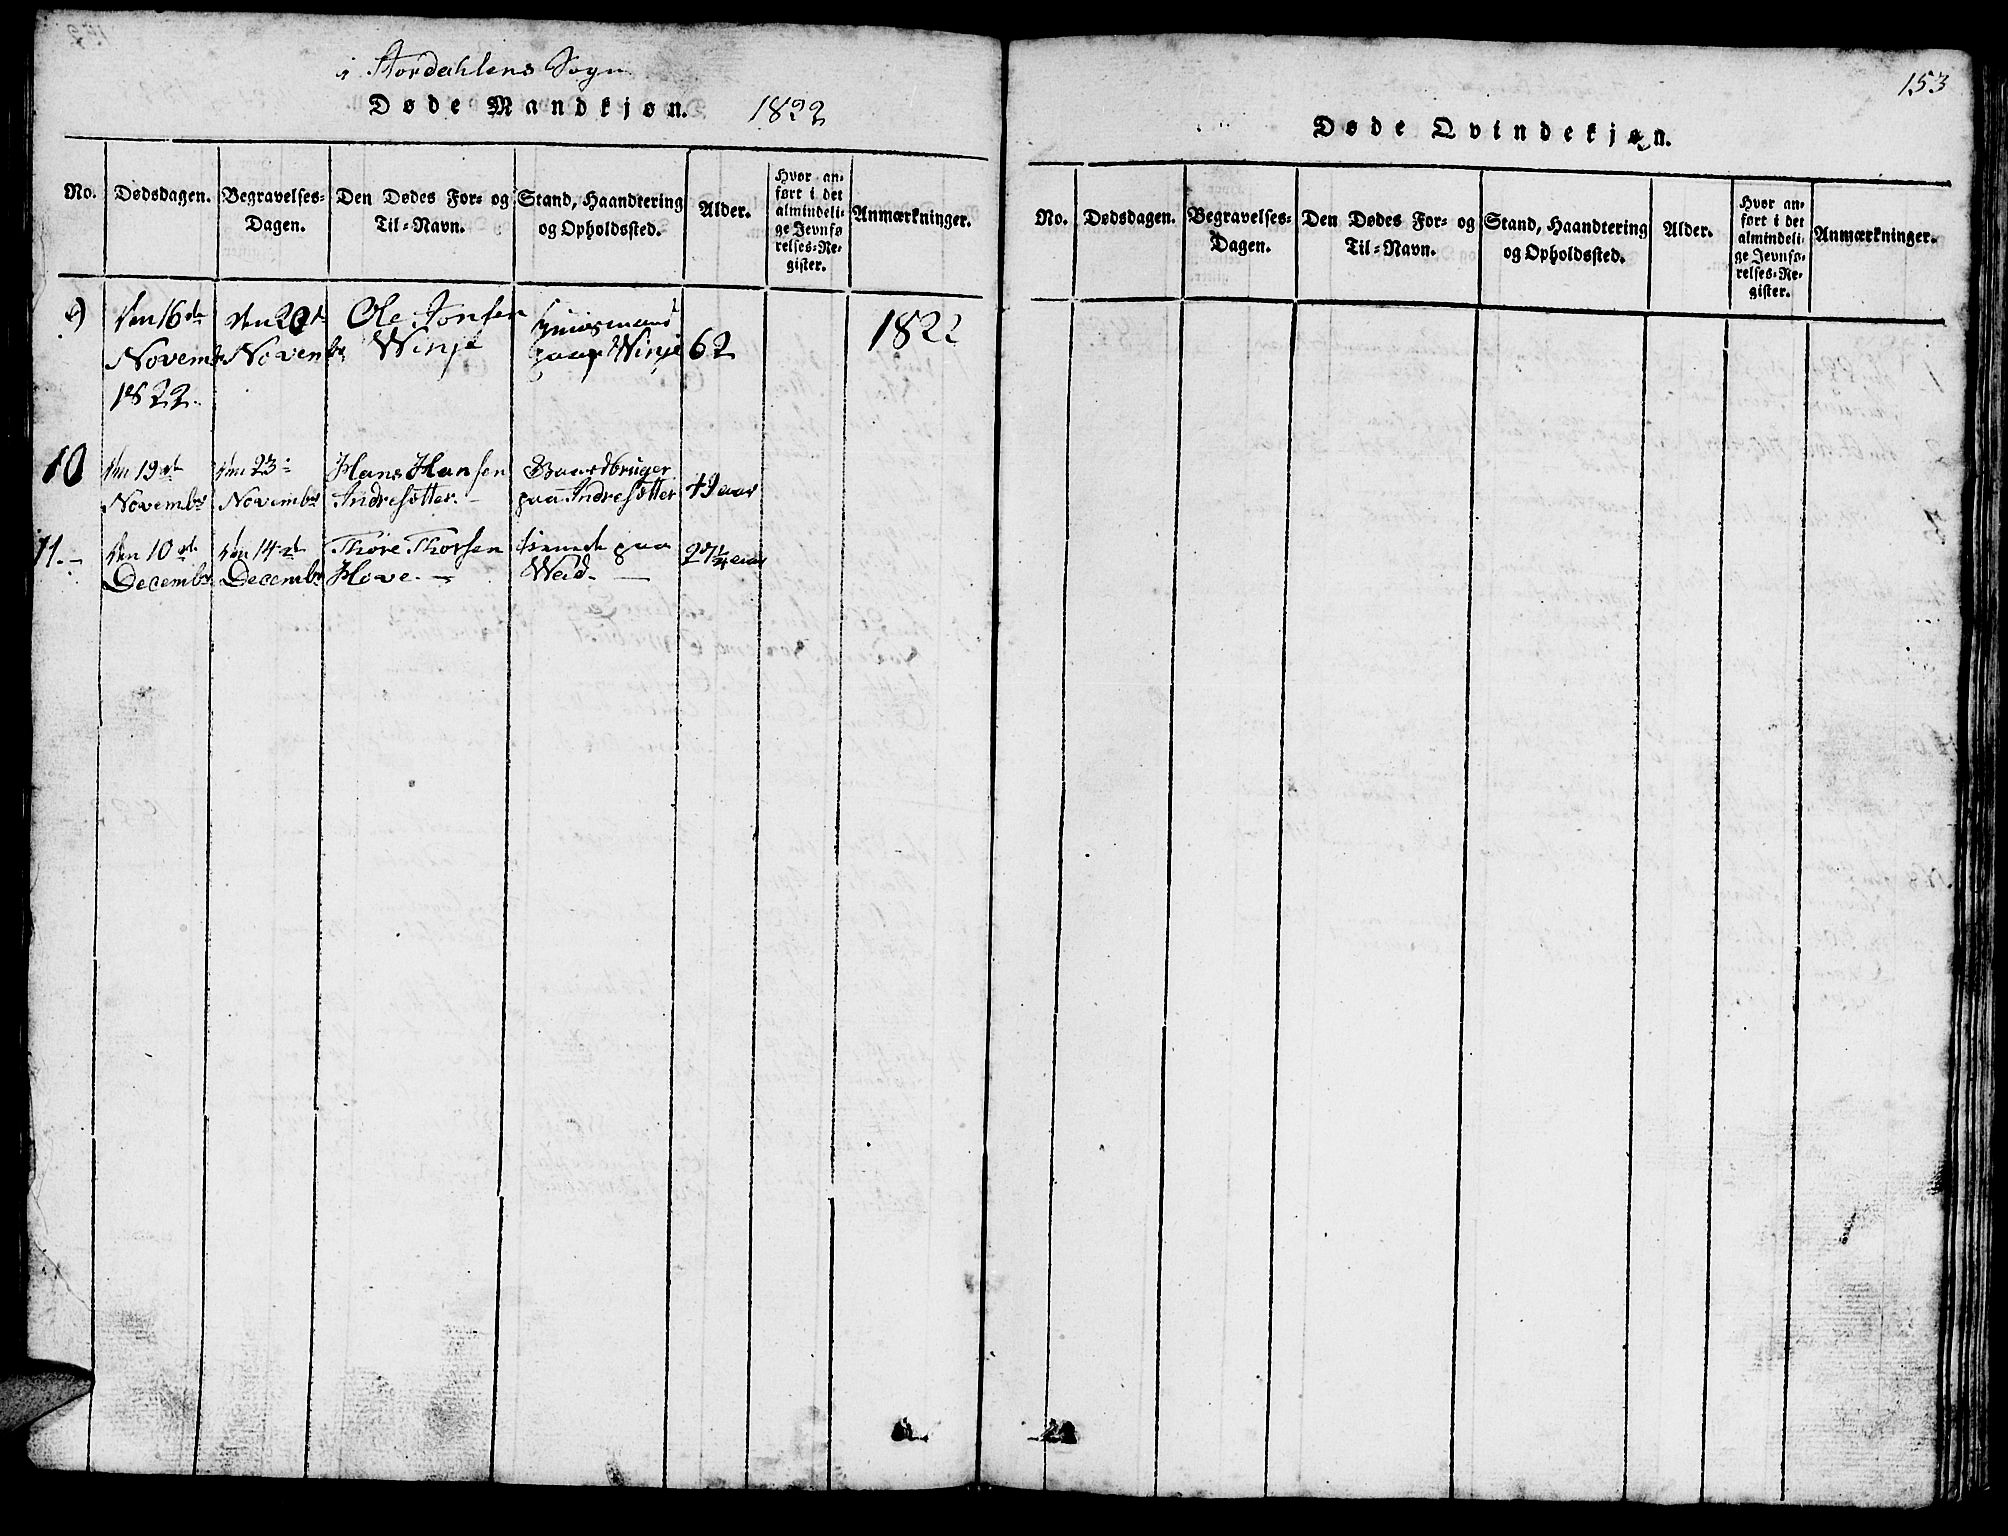 i Stordahlens Sogn
Døde Mandkjøn. 1822
No. Dødsdagen. Begravelses-Dagen. Den Dødes For- og Til-Navn. Stand, Haandtering og Opholdssted. Alder. Hvor anført i det almindelige Jevnførelses-Register. Anmærkninger.
9) den 16de den 20de Ole Jonsen 1822
Novemb Novembr Winje paa Winje 62
1822.
10 den 19de den 23- Hans Hansen Gaardbruger
Novembr Novembr Indresætter. - paa Indresætter 49 aar
11. - den 10de den 14de Thore Thorsen paa 27¼ aar
Decembr Decembr Hove. - Wad. -
153
Døde Qvindekjøn.
No. Dødsdagen. Begravelses-Dagen. Den Dødes For- og Til-Navn. Stand, Haandtering og Opholdssted. Alder. Hvor anført i det almindelige Jevnførelses-Register. Anmærkninger.